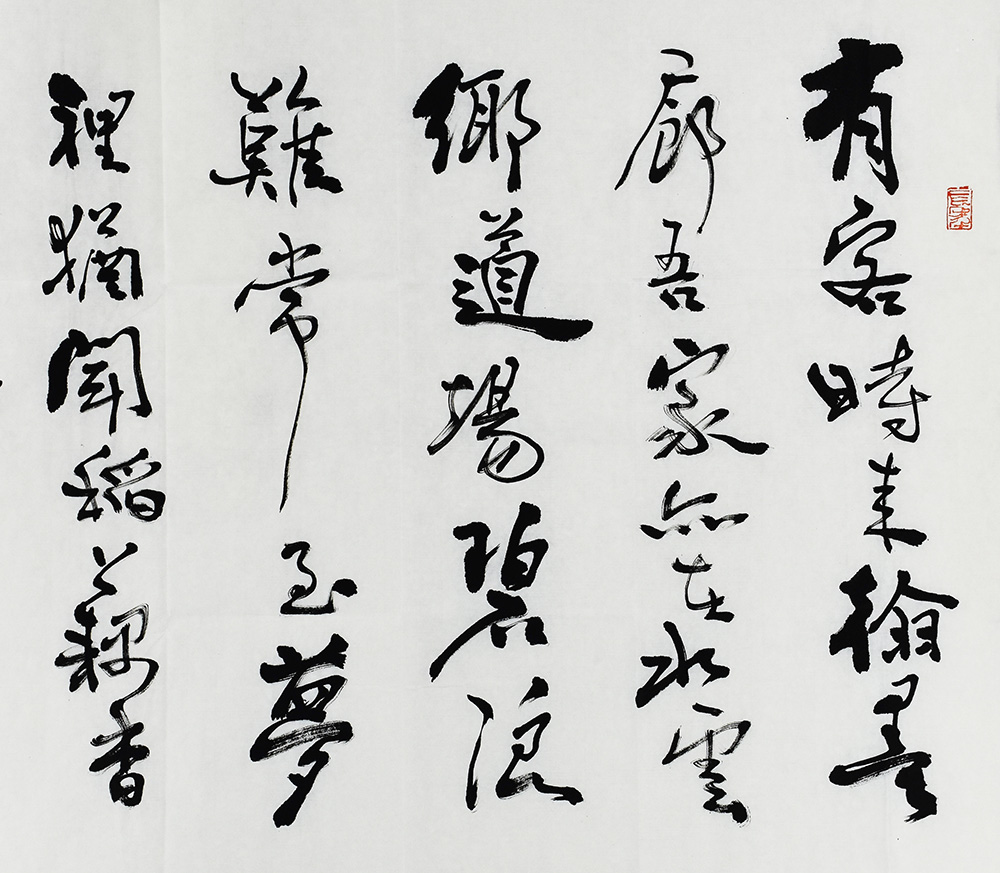 有客時来翰墨
廊吾家亦在水雲
鄉道場碧浪
難常至夢
裡猶聞稻藕香